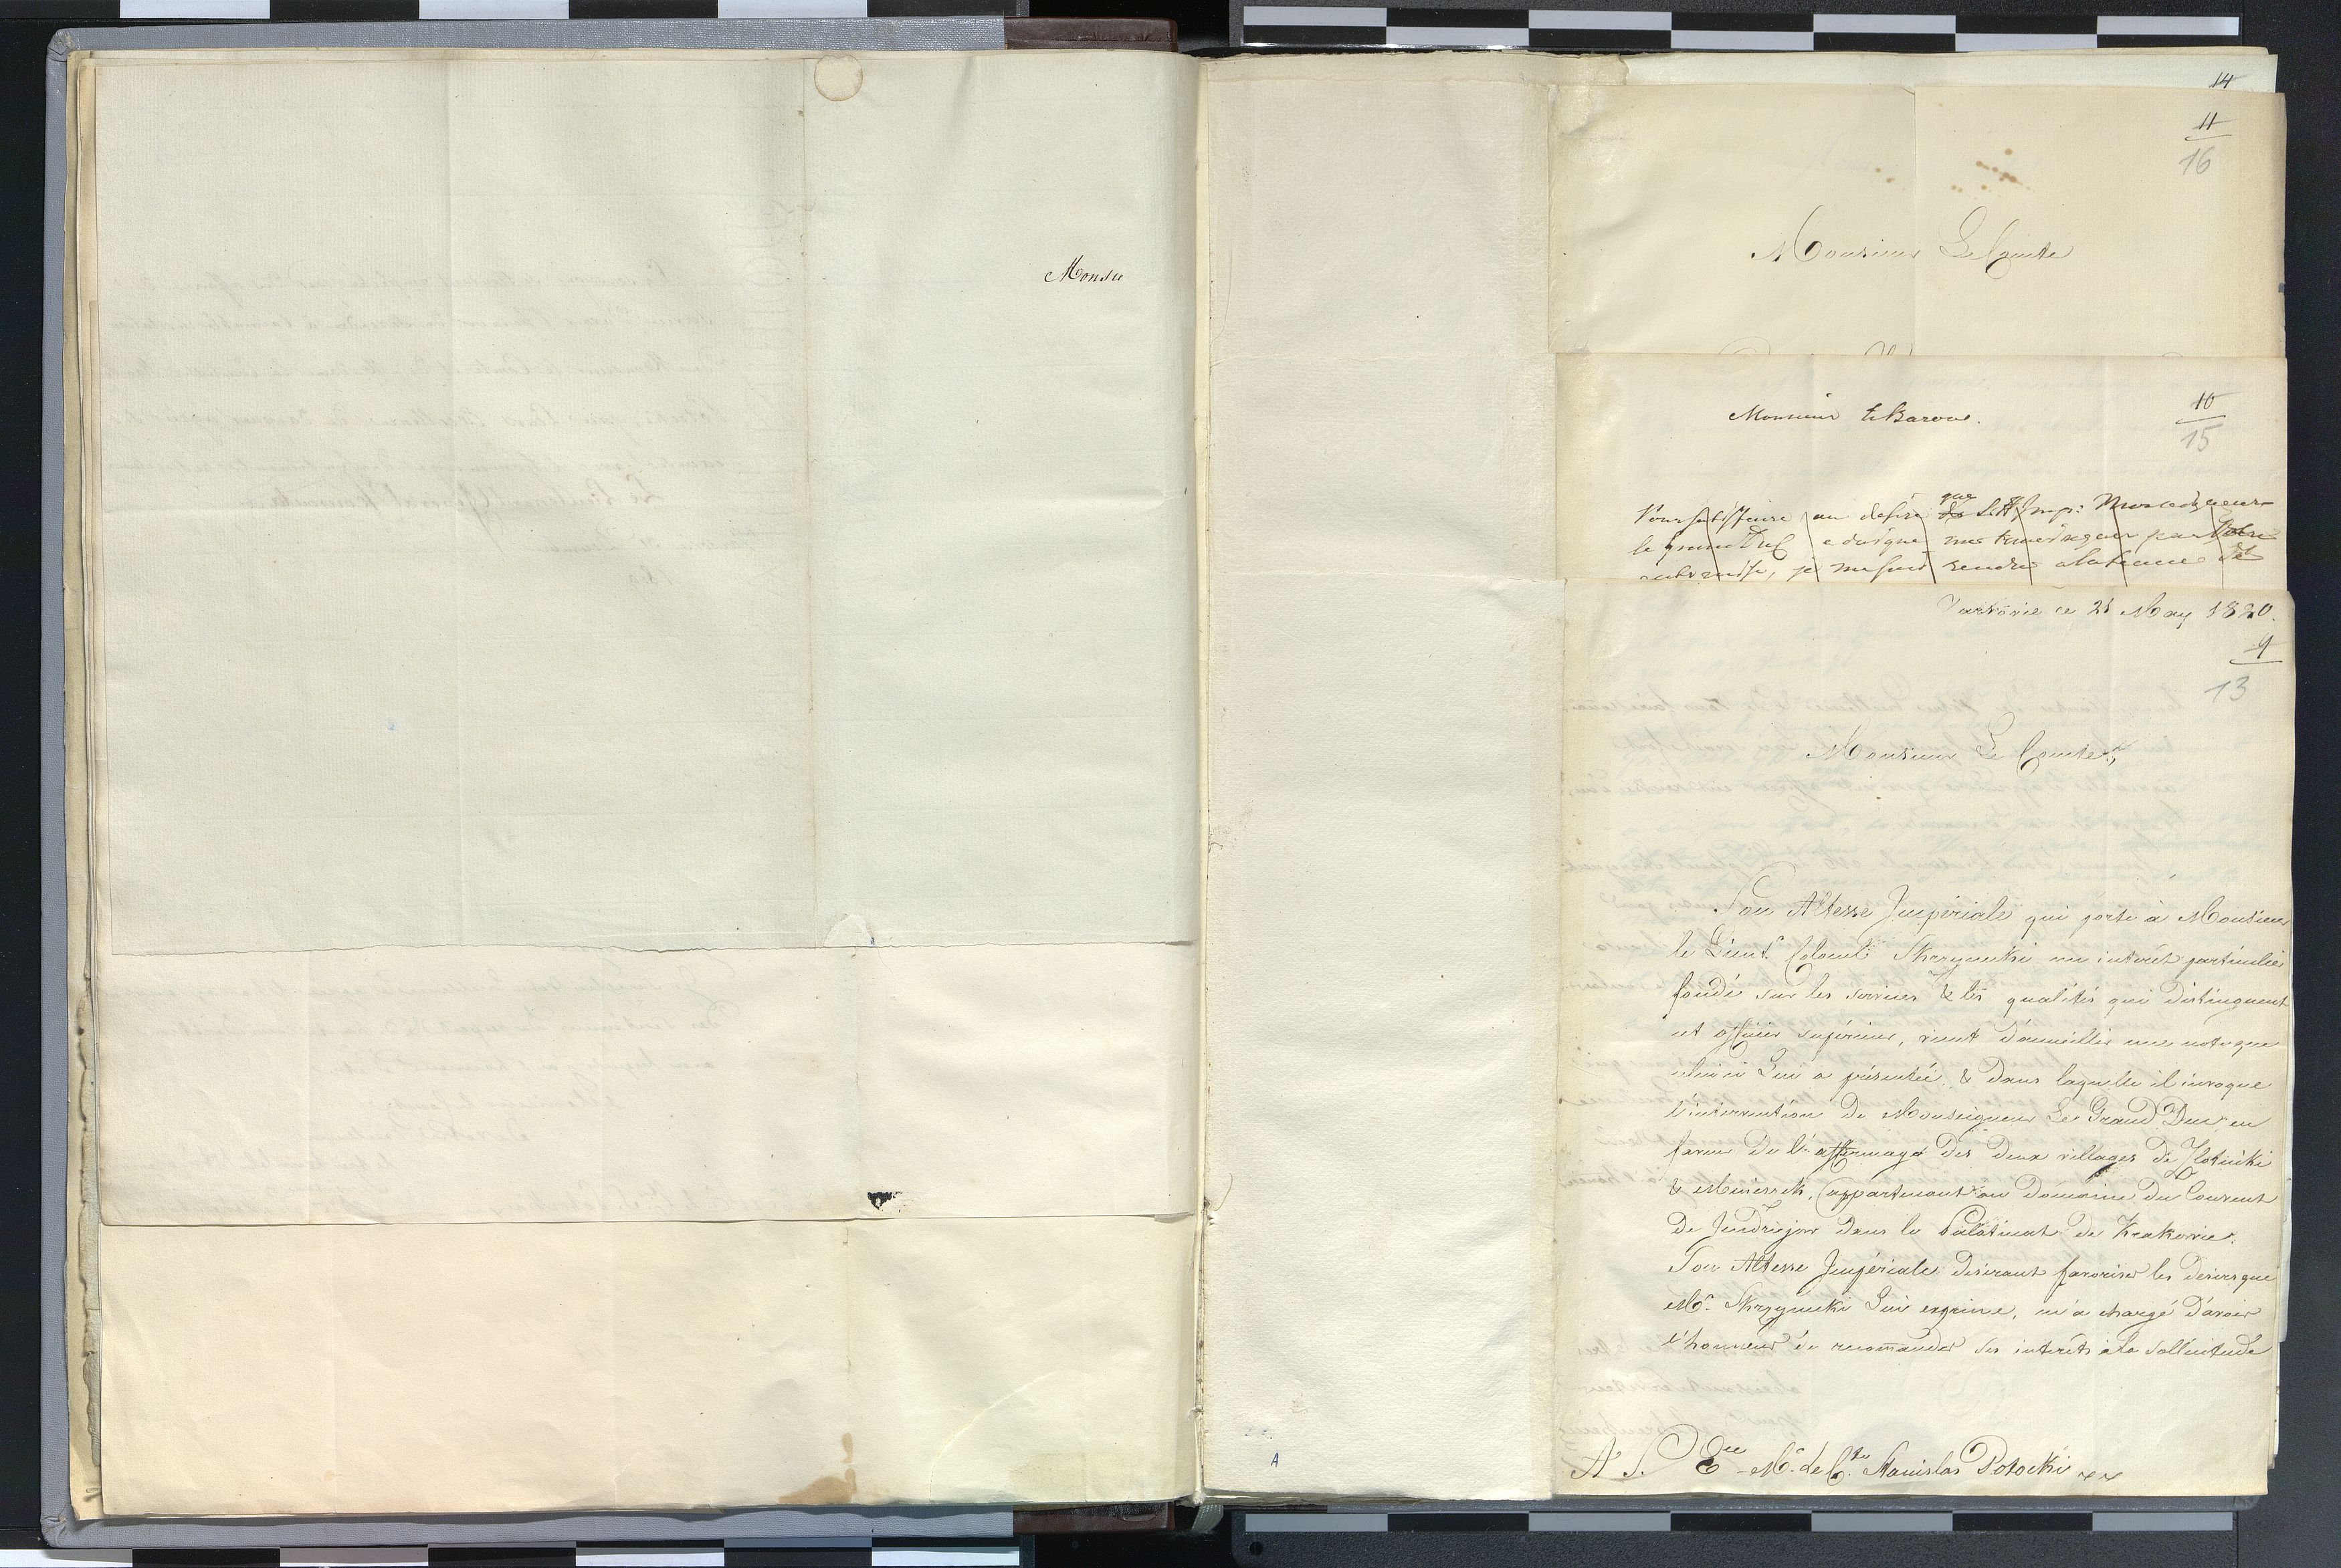 Monsie
14
11
16
Monsieur Le Comte
10
15
Monsieur le Baron.
que
Pour satisfaire au desire de S. A. Imp: Monseigneur
le grand Duc a daigné me temoigner par Votre
entremise, je me suis rendu
Varsovie ce 21 May 1820.
9
13
Monsieur Le Comte,
Son Altesse Impériale qui porte à Monsieur
le Lieut. Colonel Skrzynecki un intérêt particulier
fondé sur les services & les qualités qui distinguent
cet officier supérieur, vient d'accueillir une note que
celui ci Lui a présentée, & dans laquelle il invoque
l'intervention de Monseigneur Le Grand Duc en
faveur de l'affermage des deux villages de Zlotniki
& Mnierzek, appartenant au Domaine du Couvent
de Jendrzejow dans le Palatinat de Krakovie.
Son Altesse Impériale désirant favoriser les désirs que
Mr. Skrzynecki Lui exprime, m'a chargé d'avoir
l'honneur de recommander ses intérêts à la sollicitude
A S. Ece Mr. le Cte Stanislas Potocki
A